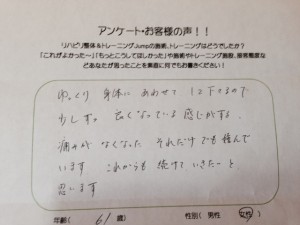 アンケート・お客様の声！！
リハビリ整体&トレーニングJumpの施術、トレーニングはどうでしたか？
「これがよかった〜」「もっとこうしてほしかった」や施術やトレーニング施設、接客態度な
どあなたが思ったことを素直に何でもお書きください！
ゆっくり 身体に あわせて して下さるので
少しずつ 良くなっている 感じがする、
痛みが なくなった それだけでも 喜んで
います これからも 続けて いきたーと
思います
年齢( 61 歳) 性別( 男性 女性 )